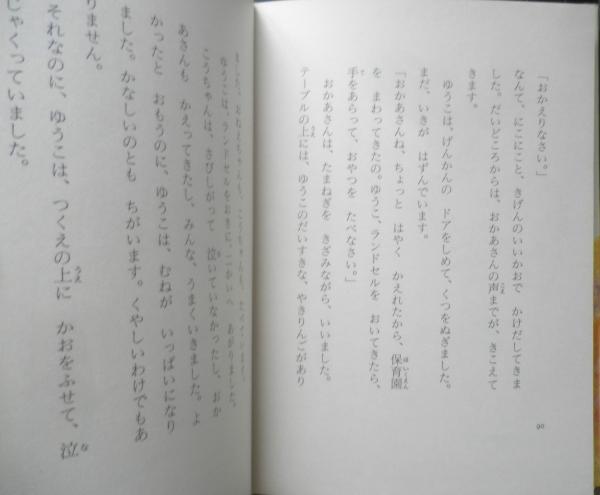 「おかえりなさい。」
なんて、にこにこと、きげんのいいかおで かけだしてきま
した。だいどころからは、おかあさんの声までが、きこえて
きます。
ゆうこは、げんかんの ドアをしめて、くつをぬぎました。
まだ、いきが はずんでいます。
「おかあさんね、ちょっと はやく かえれたから、保育園
を まわってきたの。ゆうこ、ランドセルを おいてきたら、
手をあらって、おやつを たべなさい。」
おかあさんは、たまねぎを きざみながら、いいました。
テーブルの上には、ゆうこのだいすきな、やきりんごがあり
90
ました。
ゆうこは、ランドセルをおきに、二かいへ あがりました。
こうちゃんは、さびしがって 泣いていなかったし、おか
あさんも かえってきたし、みんな、うまくいきました。よ
かったと おもうのに、ゆうこは、むねが いっぱいになり
ました。かなしいのとも ちがいます。くやしいわけでもあ
りません。
それなのに、ゆうこは、つくえの上に かおをふせて、泣
じゃくっていました。